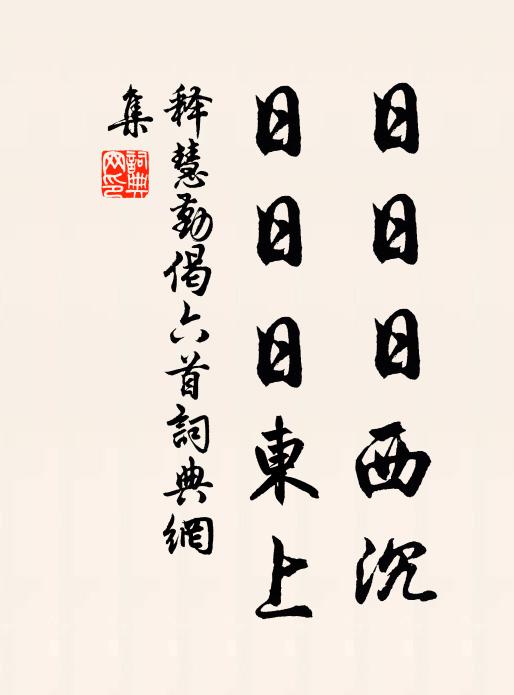 日日日西沉
日日日東上
释慧勤偈六首詞典網
集
詞典
网印